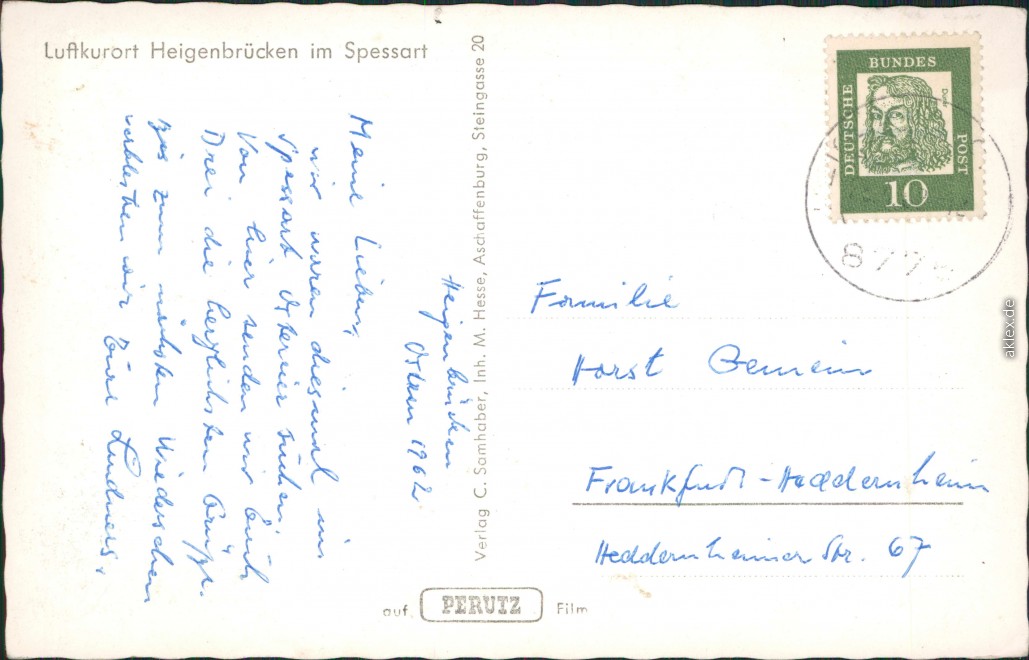 Luftkurort Heigenbrücken im Spessart
Heigenbrücken
Ostern 1962
Meine Lieben,
wir waren diesmal im
Spessart Ostereier suchen.
Von hier senden wir Euch
Drei die herzlichsten Grüße.
Bis zum nächsten Wiedersehen
verbleiben wir Eure
Verlag C. Samhaber, Inh. M. Hesse, Aschaffenburg, Steingasse 20
auf PERUTZ Film
DEUTSCHE
BUNDES
POST
Dürer
10
877
Familie
Horst
Frankfurt-Heddernheim
Heddernheimer Str. 67
aklex.de